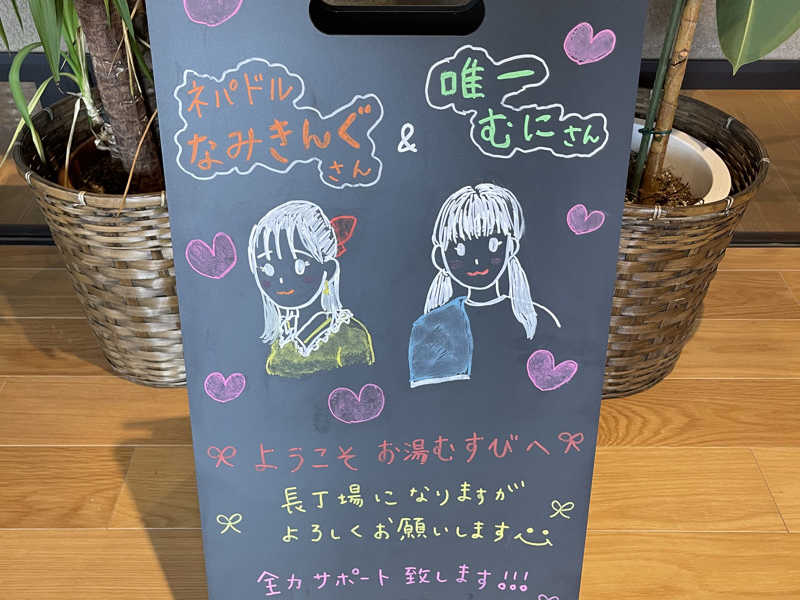 ネパドル
なみきんぐ
さん
&
唯一
むにさん
ようこそ お湯むすびへ
長丁場になりますが
よろしくお願いします
全力サポート致します!!!